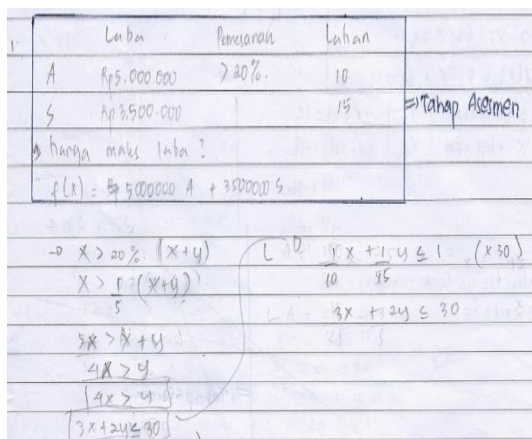 1. Laba Pemesanan Lahan
A Rp5.000.000 >20%. 10
S Rp3.500.000 15
⇒ Tahap Asesmen
→ harga maks laba?
f(x) = 5000000 A + 3500000 S
→ x > 20%. (x+y)
x > 1/5 (x+y)
5x > x + y
4x > y
4x > y
3x + 2y ≤ 30
1/10 x + 1/15 y ≤ 1 (x30)
3x + 2y ≤ 30